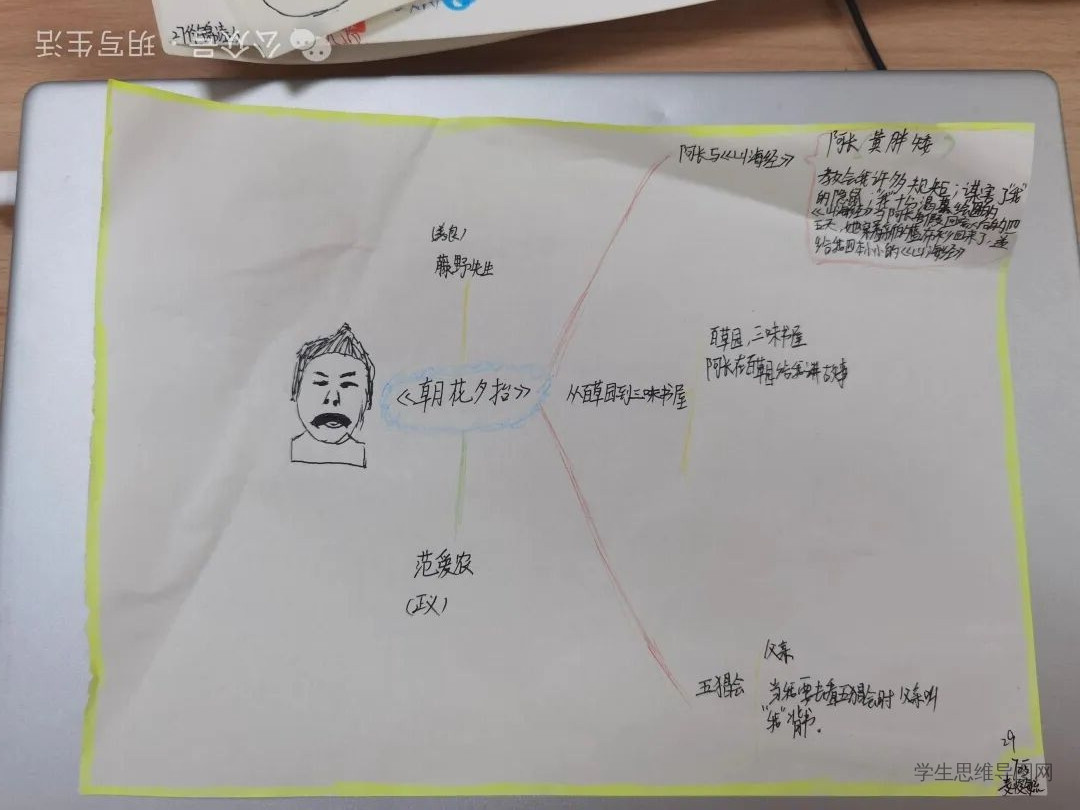 公众号·玥写生活
阿长与《山海经》
阿长 黄胖矮
教会我许多规矩；谋害了"我"
的隐鼠；"我"十分渴慕绘画的
《山海经》当阿长
给我四本小小的《山海经》
（善良）
藤野先生
百草园，三味书屋
阿长在百草园给我讲故事
《朝花夕拾》
从百草园到三味书屋
范爱农
（正义）
五猖会
父亲
当我要去看五猖会时 父亲叫
"我"背书。
29
学生思维导图网